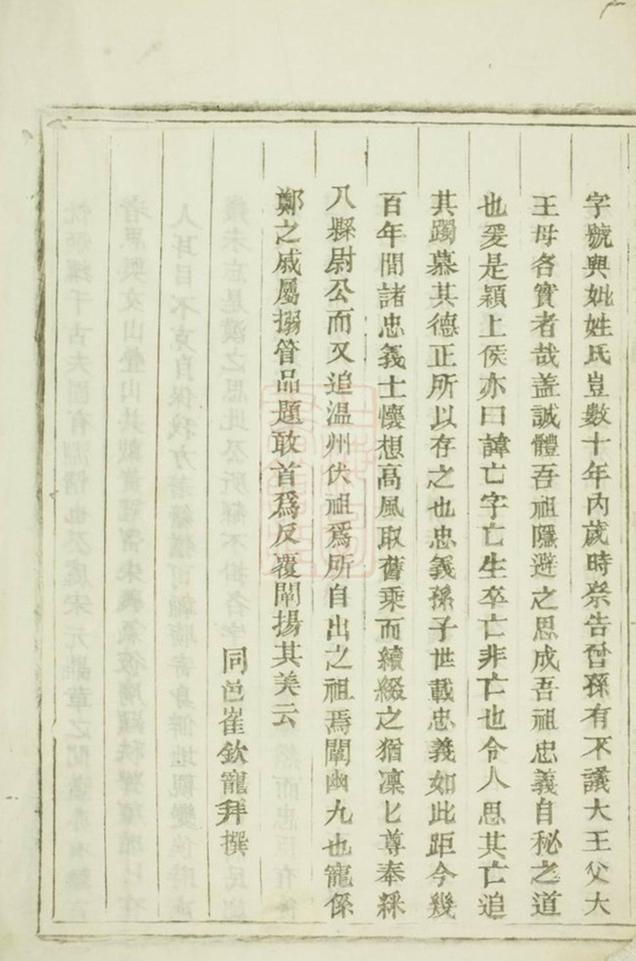 字號與妣姓氏豈數十年內歲時祭告曾孫有不議大王父大
王母各實者哉盖誠體吾祖隱避之思成吾祖忠義自秘之道
也爰是穎上侯亦曰諱亡字亡生卒亡非亡也令人思其亡追
其躅慕其德正所以存之也忠義孫子世載忠義如此距今幾
百年間諸忠義士懷想高風取舊乘而續綴之猶凜匕尊奉釆
八縣尉公而又追温州伏祖爲所自出之祖焉闡幽九也寵係
鄭之戚屬搦管品題敢首爲反覆闡揚其美云
同邑崔欽寵拜撰